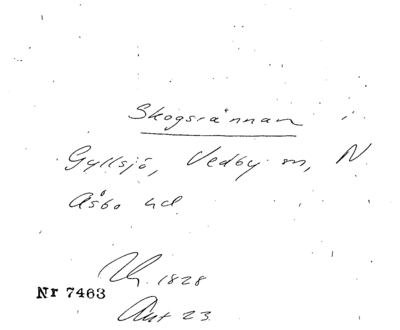 Skogsrännan i
Gyllsjö, Vedby sn, N
Åsbo hd
1828
Nr 7463
Ant 23